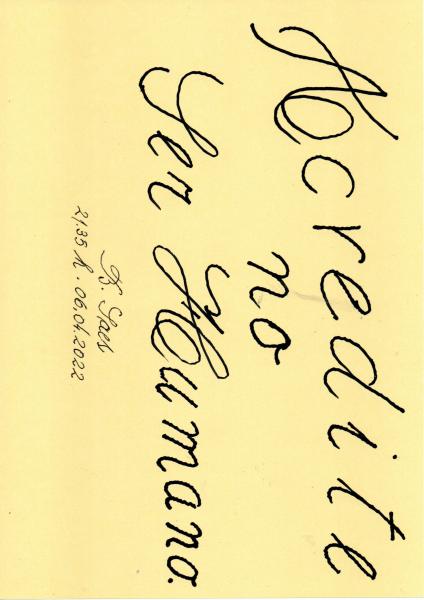 Acredite
no
Ser Humano.
B. Spaes
21:35 h. 06.04.2022